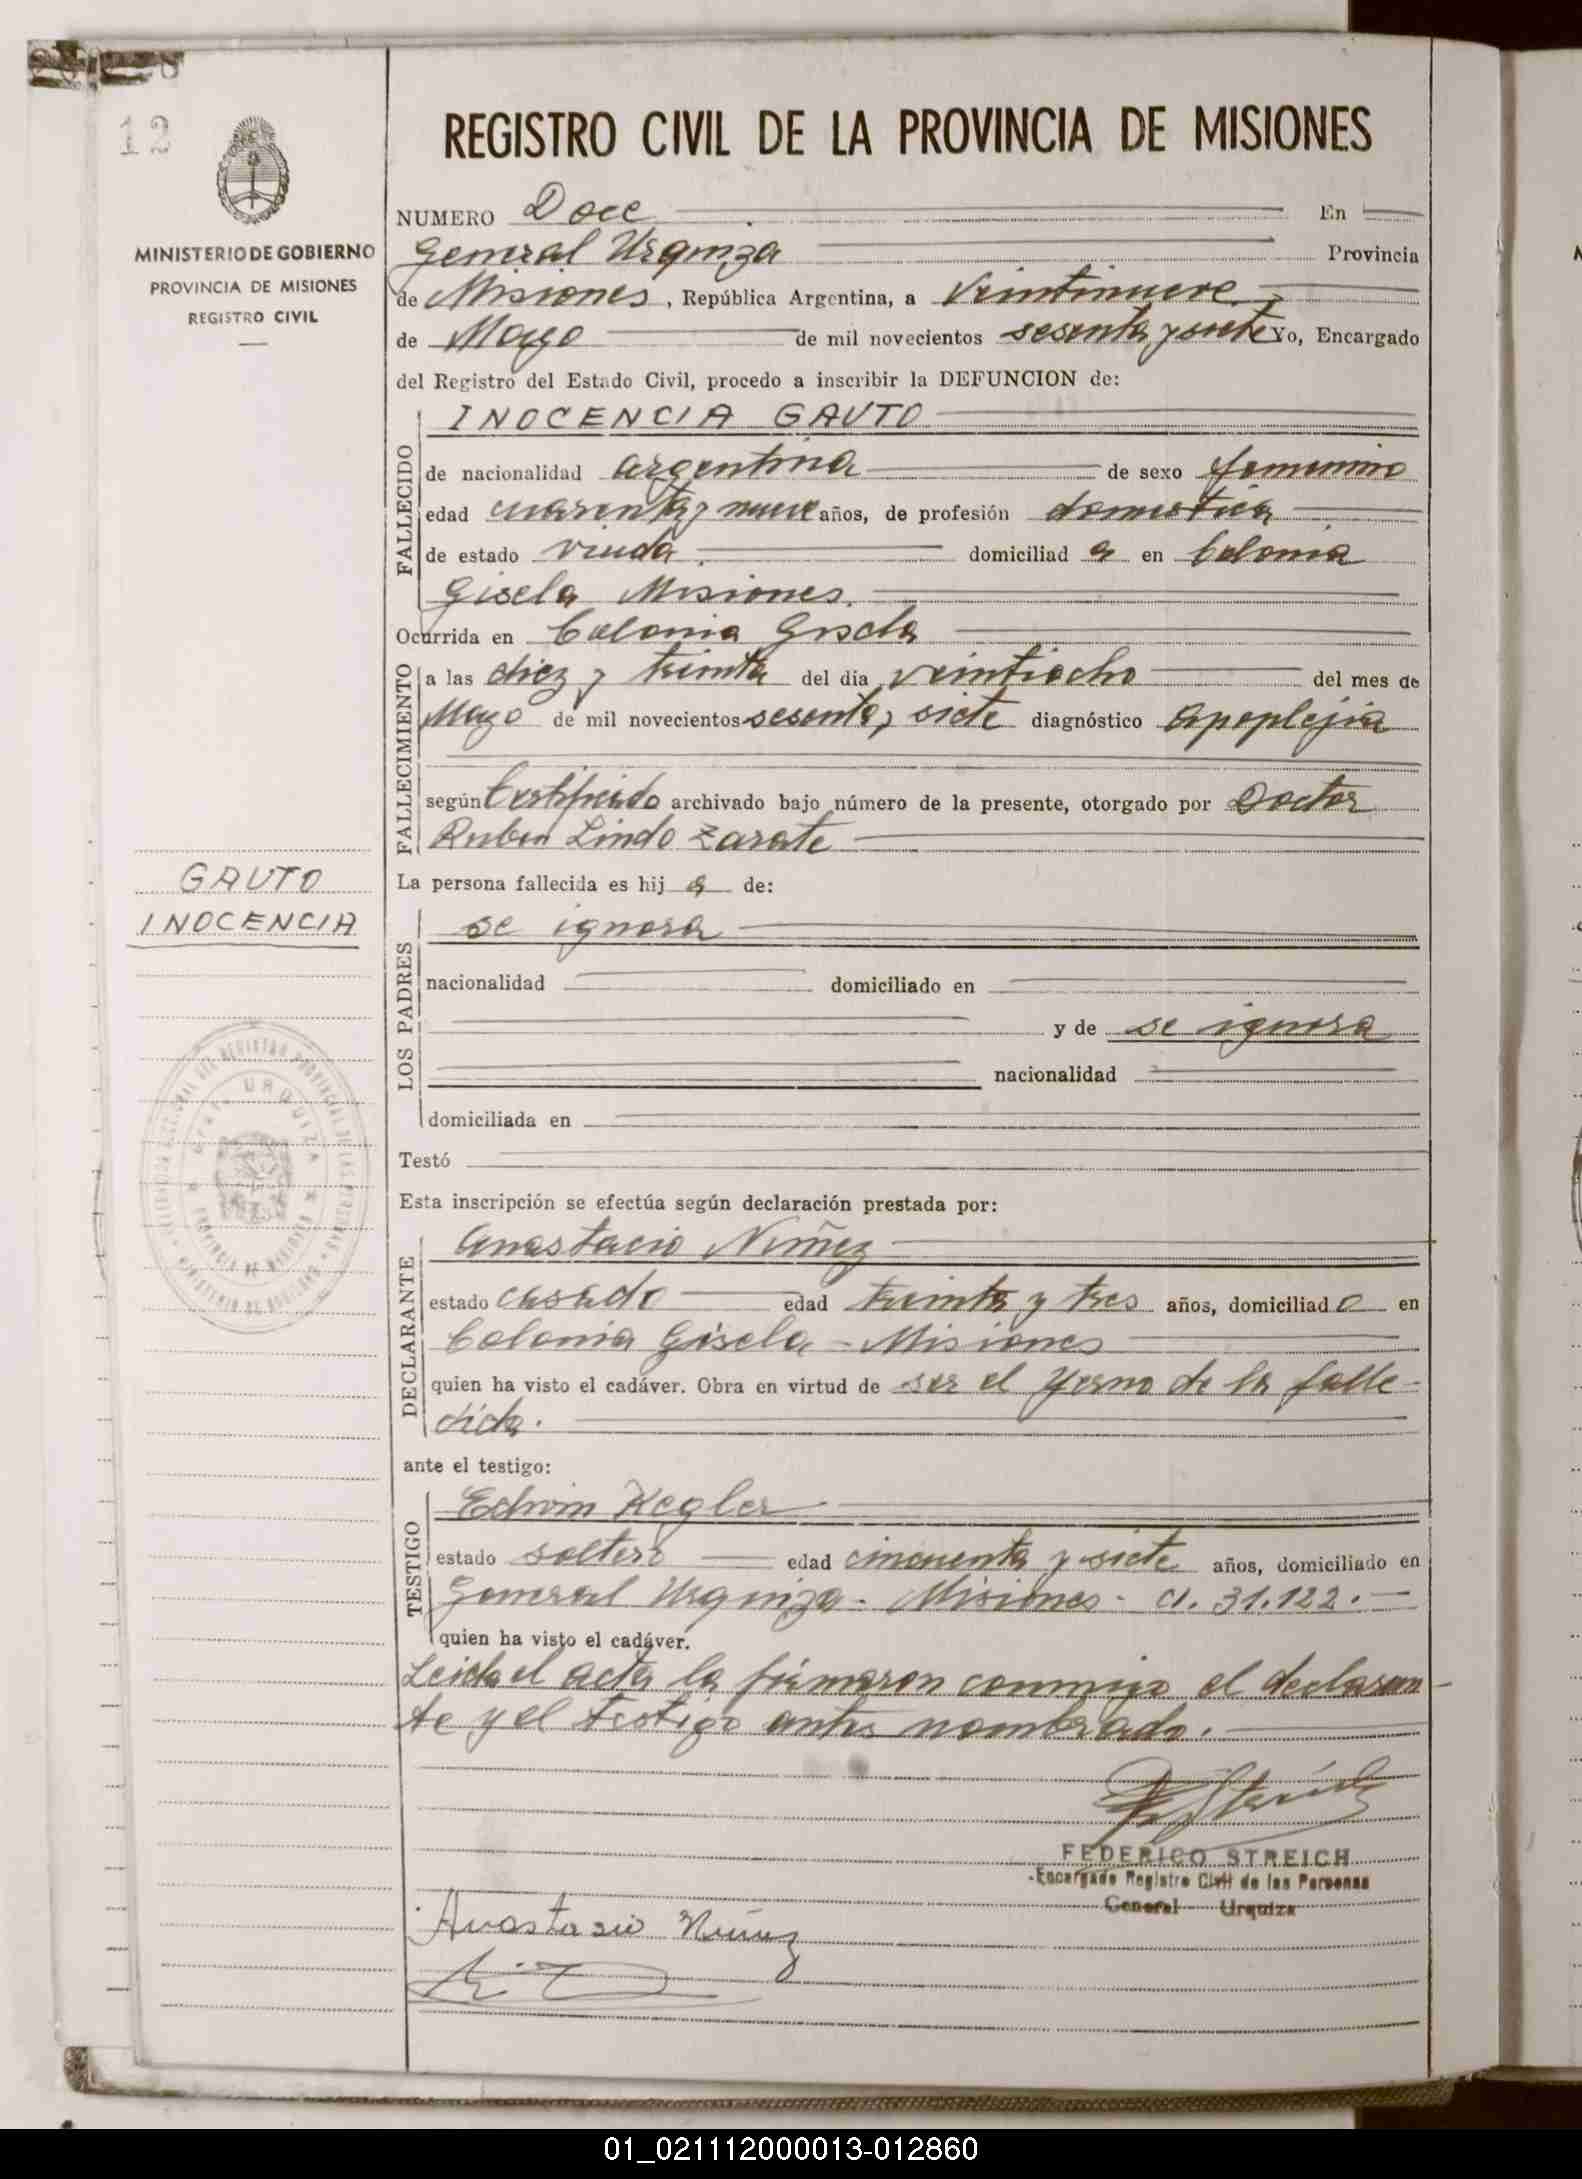 12
MINISTERIO DE GOBIERNO
PROVINCIA DE MISIONES
REGISTRO CIVIL
REGISTRO CIVIL DE LA PROVINCIA DE MISIONES
NUMERO Doce En
General Urquiza Provincia
de Misiones, República Argentina, a Veintinueve
de Mayo de mil novecientos sesenta y siete Yo, Encargado
del Registro del Estado Civil, procedo a inscribir la DEFUNCION de:
FALLECIDO
INOCENCIA GAUTO
de nacionalidad argentina de sexo femenino
edad cuarenta y nueve años, de profesión domestica
de estado viuda domiciliad a en Colonia
Gisela Misiones.
Ocurrida en Colonia Gisela
FALLECIMIENTO
a las diez y treinta del día veintiocho del mes de
Mayo de mil novecientos sesenta y siete diagnóstico apoplejia
según Certificado archivado bajo número de la presente, otorgado por Doctor
Ruben Lindo Zarate
GAUTO
INOCENCIA
La persona fallecida es hij a de:
LOS PADRES
se ignora
nacionalidad domiciliado en
y de se ignora
nacionalidad
domiciliada en
Testó
Esta inscripción se efectúa según declaración prestada por:
DECLARANTE
Anastacio Nuñez
estado casado edad treinta y tres años, domiciliad o en
Colonia Gisela - Misiones
quien ha visto el cadáver. Obra en virtud de ser el yerno de la falle-
cida.
ante el testigo:
TESTIGO
Edwin Kegler
estado soltero edad cincuenta y siete años, domiciliado en
General Urquiza - Misiones - CI. 31.122.-
quien ha visto el cadáver.
Leida el acta la firmaron conmigo el declaran-
te y el testigo antes nombrado.
FEDERICO STREICH
Encargado Registro Civil de las Personas
General Urquiza
Anastasio Núñez
01_021112000013-012860